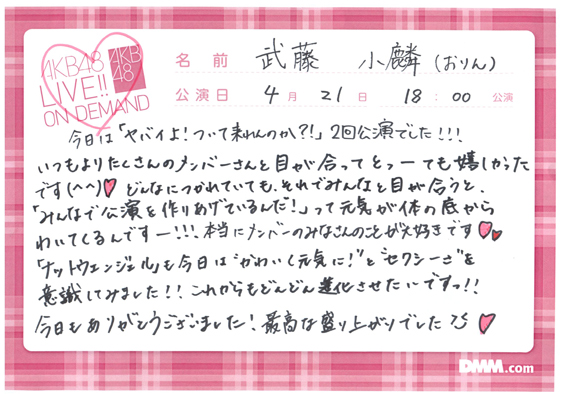 AKB48
LIVE!!
ON DEMAND
AKB
48
名前 武藤 小麟(おりん)
公演日 4月21日 18:00 公演
今日は「ヤバイよ!ついて来れんのか?!」2回公演でした!!!
いつもよりたくさんのメンバーさんと目が合ってとっーても嬉しかった
です(^^)♥ どんなにつかれていても、それでみんなと目が合うと、
「みんなで公演を作りあげているんだ!」って元気が体の底から
わいてくるんですー!!! 本当にメンバーのみなさんのことが大好きです♥♥
「ナットウエンジェル」も今日は"かわいく元気に!"と"セクシーさ"を
意識してみました!! これからもどんどん進化させたいですっ!!
今日もありがとうございました! 最高な盛り上がりでした ♥
DMM.com